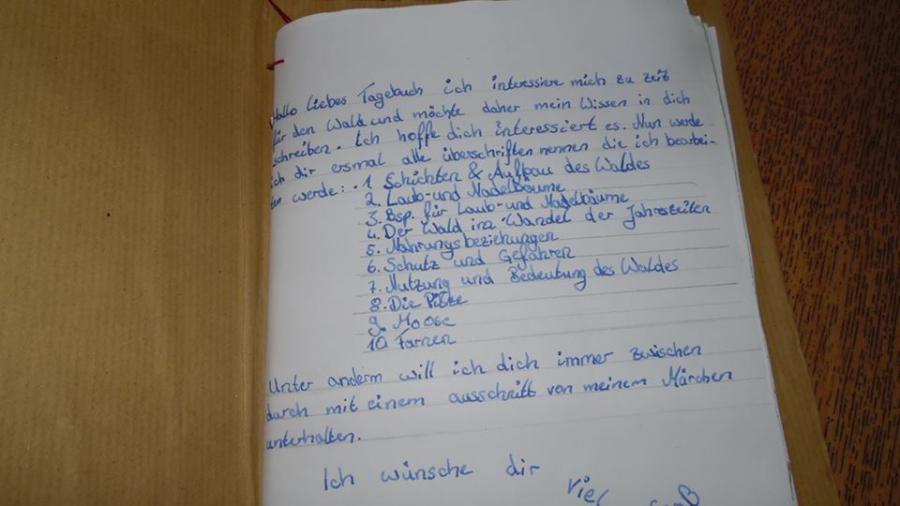 Hallo liebes Tagebuch ich interessiere mich zu zeit
für den Wald und möchte daher mein Wissen in dich
schreiben. Ich hoffe dich interessiert es. Nun werde
ich dir ersmal alle überschriften nennen die ich bearbei-
ten werde: . 1 Schichten & Aufbau des Waldes
2. Laub-und Nadelbäume
3. Bsp. für Laub-und Nadelbäume
4. Der Wald im Wandel der Jahreszeiten
5. Nahrungsbeziehungen
6. Schutz und Gefahren
7. Nutzung und Bedeutung des Waldes
8. Die Pilze
9. Moose
10 Farnen
Unter anderm will ich dich immer zwischen
durch mit einem ausschnitt von meinem Märchen
unterhalten.
Ich wünsche dir
viel